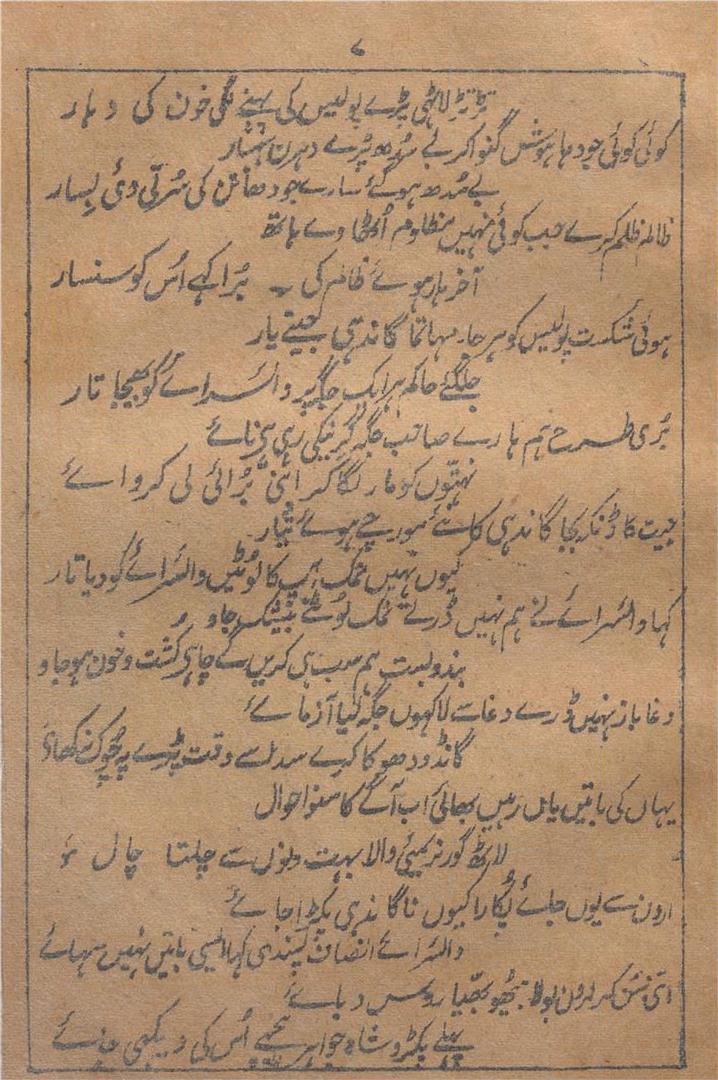 ۷
تڑتڑ لاٹھی پڑے پولیس کی بہنے لگی خون کی دہار
کوئی کوئی جودہا ہوش گنوا کر بے سُدھ پڑے دہرن
بے سُدھ ہوگئے سارے جودھا تن کی سُرتی دئی بسار
ظالم ظلم کرے جب کوئی نہیں مظلوم اُٹھاوے ہاتھ
آخر ہار ہوئے ظالم کی ۔ بُرا کہے اُس کو سنسار
ہوئی شکست پولیس کو ہر جا مہاتما گاندہی جیتے یار
حاکم ہر ایک جگہ پر والسرائے کو بھیجا تار
بُری طرح ہم ہارے صاحب جگہ
نہتّوں کو مار لگا کر اتنی بُرائی لی کروائے
جیت کا ڈنکہ بجا گاندہی کا مورچے ہوئے تیار
کیوں نہیں نمک ہپ کا لوٹیں والسرائے کو دیا تار
کہا والسرائے نے ہم نہیں ڈرتے نمک لوٹنے بیشک جاو
بندوبست ہم سب ہی کریں گے چاہے کشت و خون ہو جاو
دغا باز نہیں ڈرے دغا سے لاکہوں جگہ لیا آزمائے
گانڈو دھوکا کرے سدا سے وقت پڑے پہ
یہاں کی باتیں یاں رہیں بھائی اب آگے کا سنو احوال
لاٹ گورنر بمبئی والا بہت دنوں سے چلتا چال
ارون سے یوں جائے پُکارا کیوں نا گاندہی پکڑا جائے
والسرائے انصاف پسندی کہا ایسی باتیں نہیں سہائے
اتنی سُن کر ارون بولا
پہلے پکڑو شاہ جواہر پیچھے اُس کی دیکھی جائے